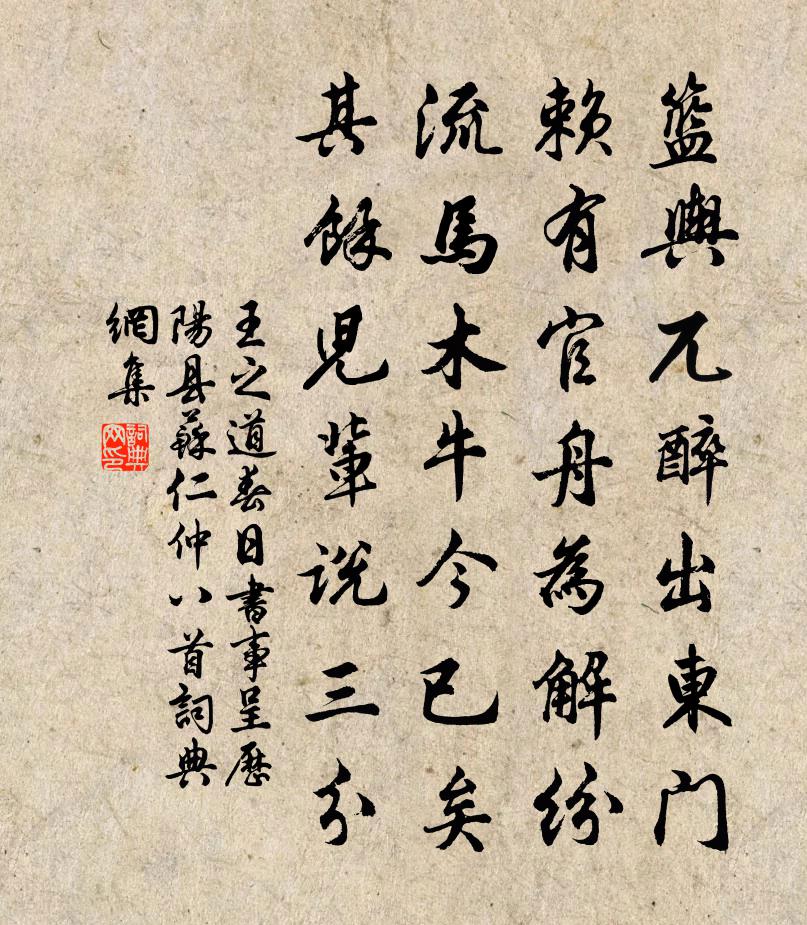 籃輿兀醉出東門
賴有官舟為解紛
流馬木牛今已矣
其餘兒輩説三分
王之道春日書事呈歷
陽县蘇仁仲八首詞典
網集
詞典
网印